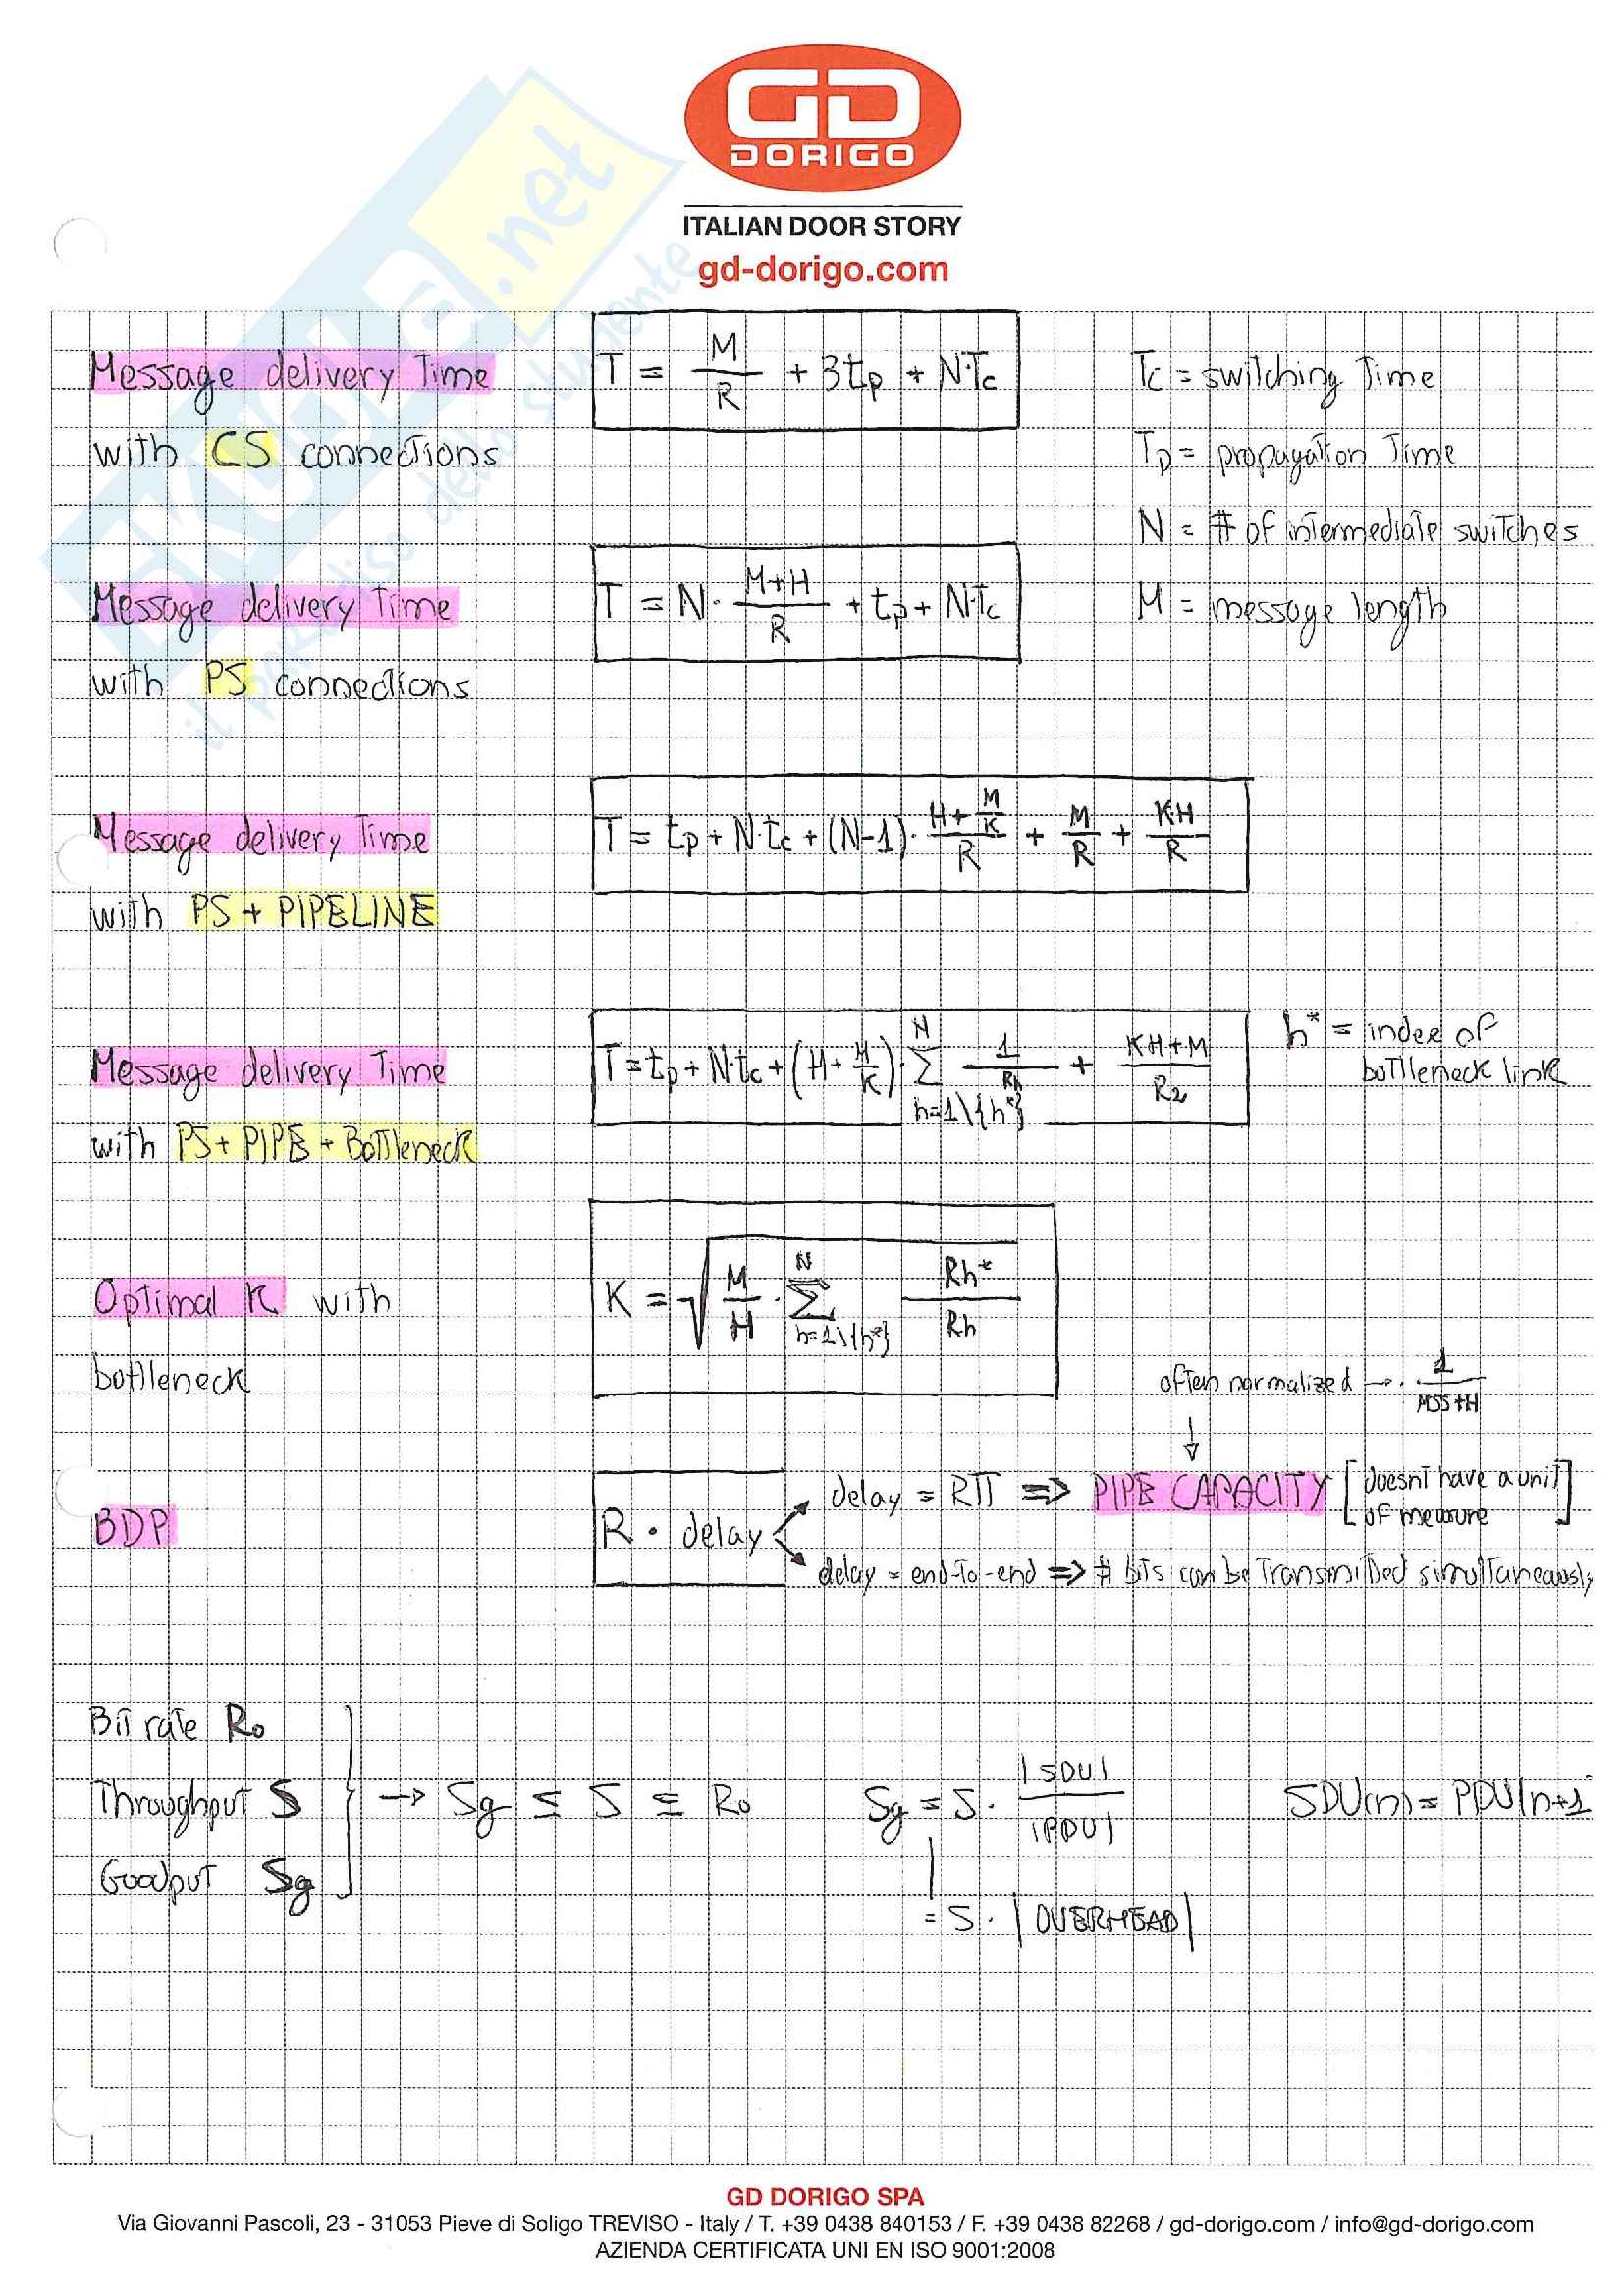 GD
DORIGO
ITALIAN DOOR STORY
gd-dorigo.com
skuola.net
il paradiso dello studente
Message delivery Time
with CS connections
T = M/R + 3tp + N·Tc
Tc = switching Time
Tp = propagation Time
N = # of intermediate switches
M = message length
Message delivery Time
with PS connections
T = N · (M+H)/R + tp + N·Tc
Message delivery Time
with PS + PIPELINE
T = tp + N·tc + (N-1) · (H + M/K)/R + M/R + K·H/R
Message delivery Time
with PS + PIPE + Bottleneck
T = tp + N·tc + (H + M/K) · N ∑ h=1\{h*} 1/Rh + (KH+M)/R2
h* = index of
bottleneck link
Optimal K with
bottleneck
K = √ M/H · N ∑ h=1\{h*} Rh*/Rh
often normalized → · 1/(MSS+H)
↓
BDP
R · delay
delay = RTT => PIPE CAPACITY [doesnt have a unit
of measure]
delay = end-to-end => # bits can be transmitted simultaneously
Bit rate Ro
Throughput S
Goodput Sg
→ Sg ≤ S ≤ Ro
Sg = S · |SDU|/|PDU|
= S · |OVERHEAD|
SDU(n) = PDU(n+1
GD DORIGO SPA
Via Giovanni Pascoli, 23 - 31053 Pieve di Soligo TREVISO - Italy / T. +39 0438 840153 / F. +39 0438 82268 / gd-dorigo.com / info@gd-dorigo.com
AZIENDA CERTIFICATA UNI EN ISO 9001:2008